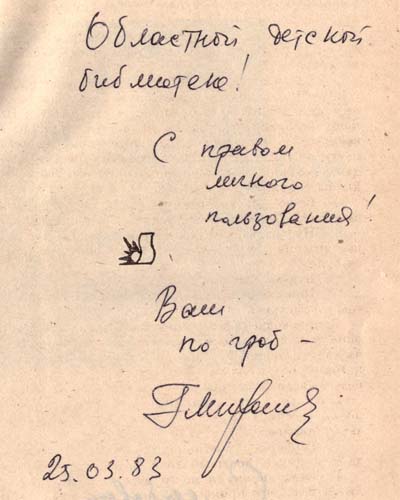 Областной детской
библиотеке!
С правом
личного
пользования!
Ваш
по гроб –
25.03.83